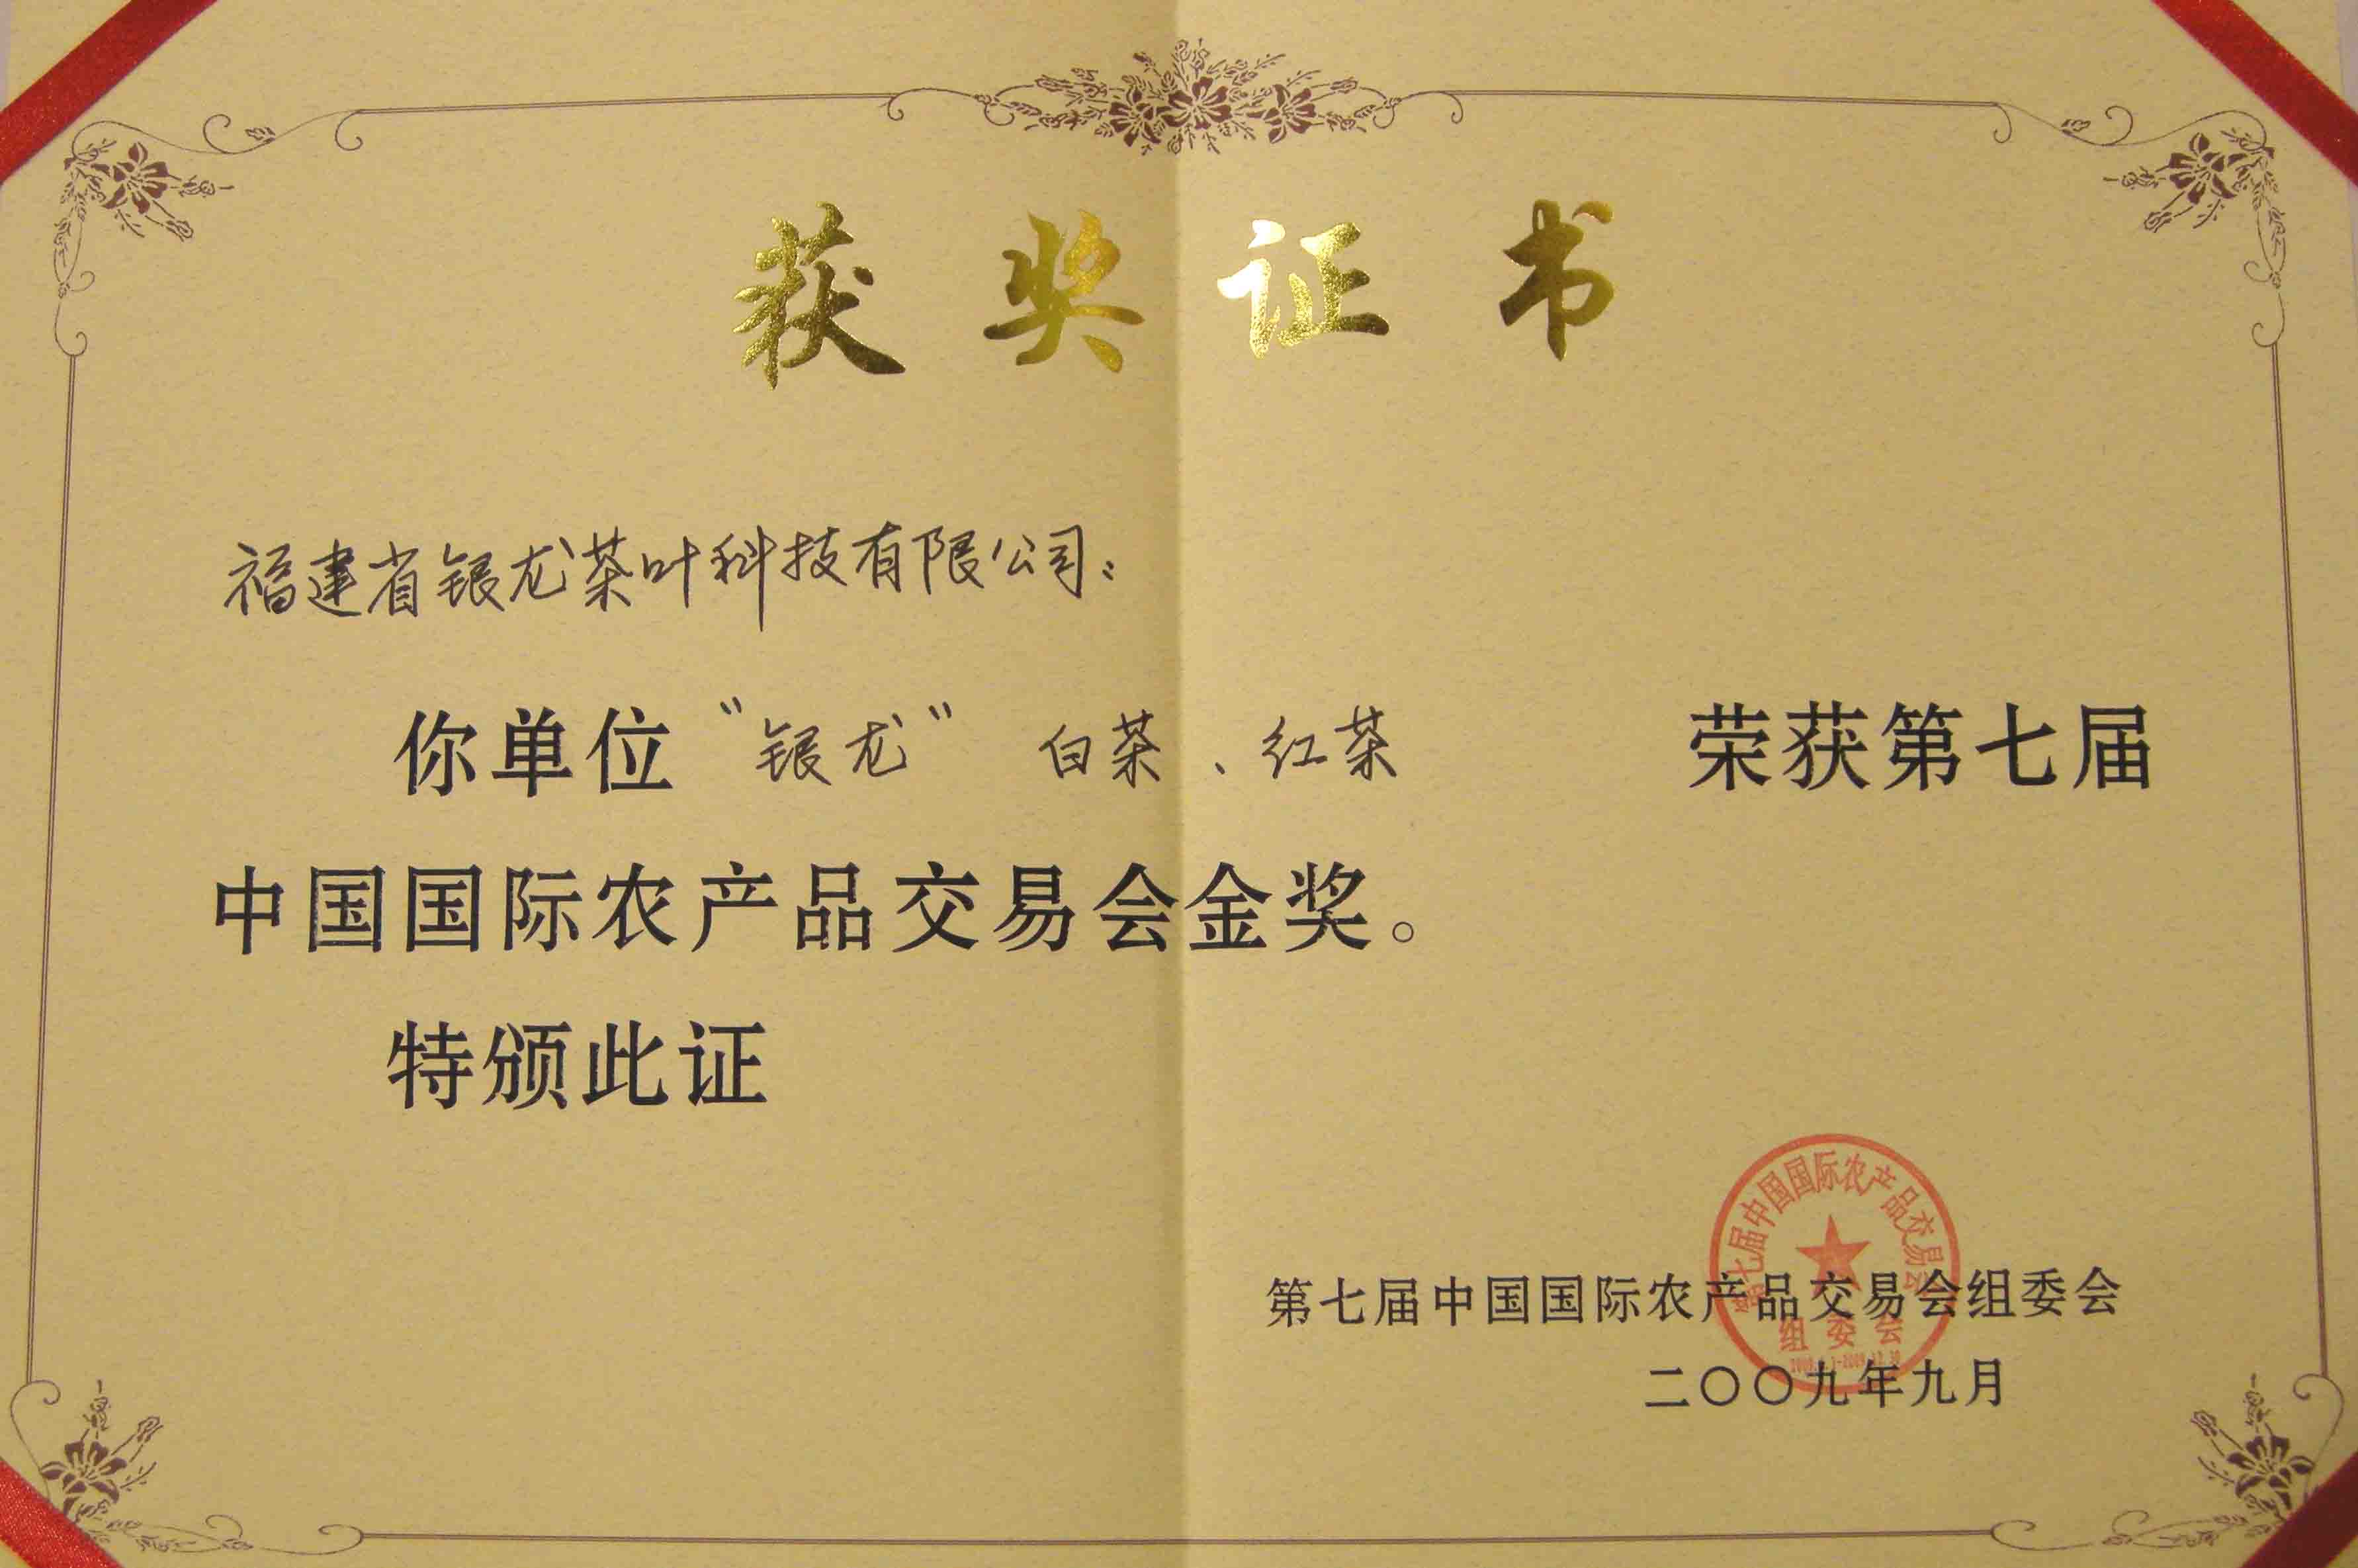 获奖证书
福建省银龙茶叶科技有限公司：
你单位“银龙” 白茶、红茶 荣获第七届
中国国际农产品交易会金奖。
特颁此证
第七届中国国际农产品交易会
组委会
第七届中国国际农产品交易会组委会
二〇〇九年九月